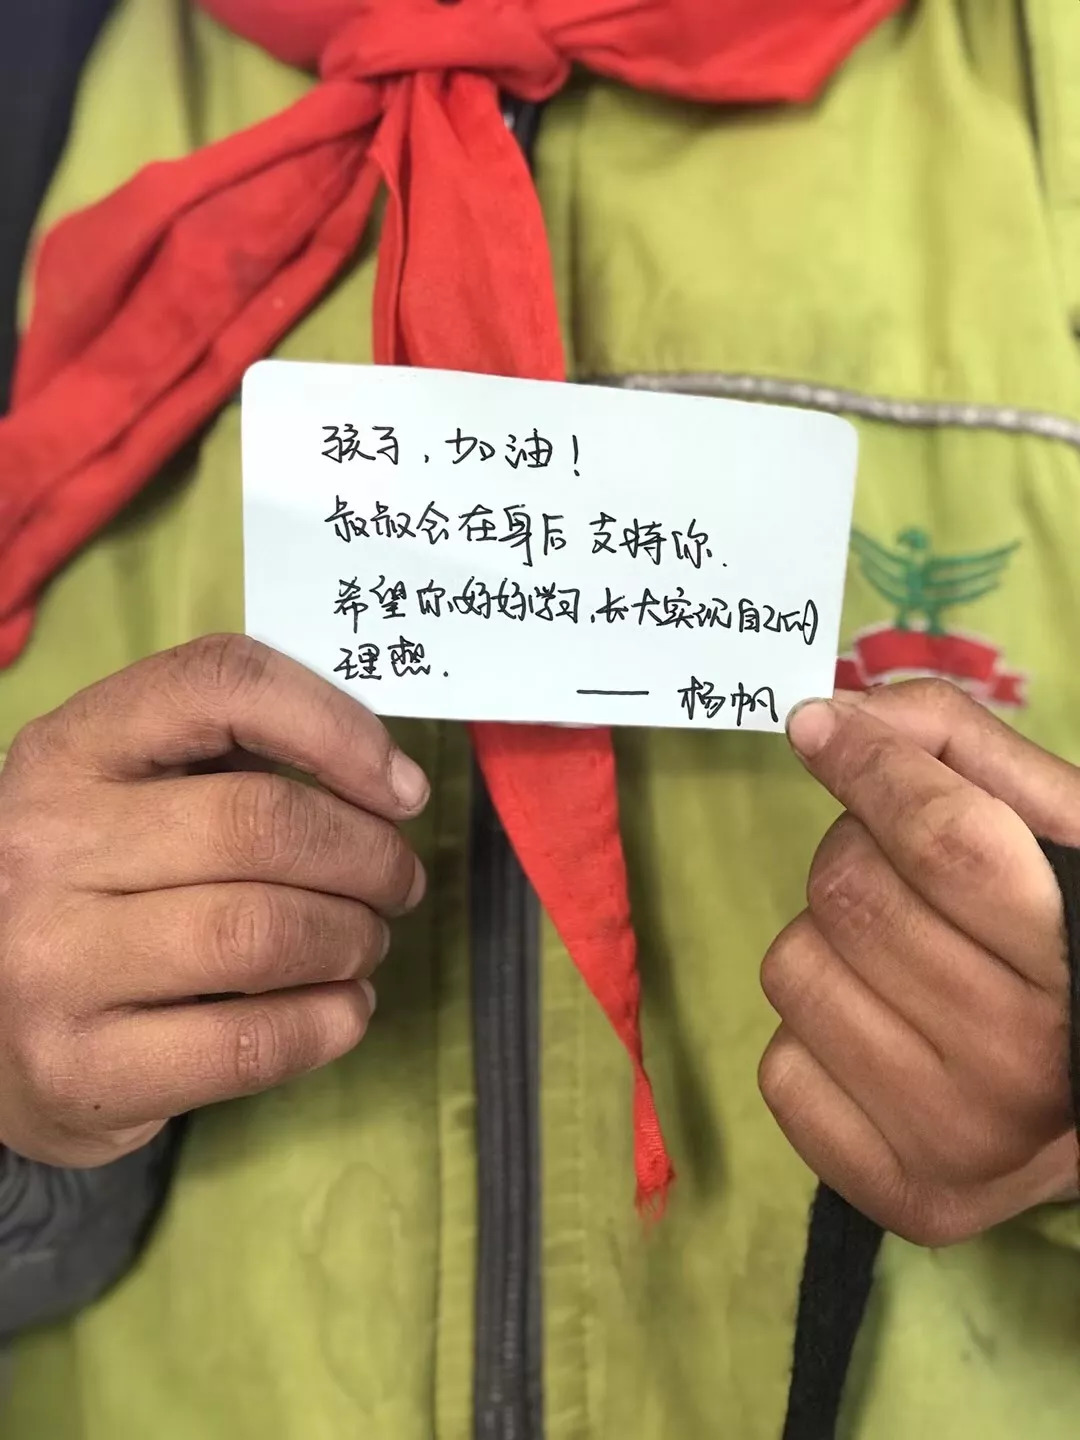 孩子,加油!
叔叔会在身后支持你.
希望你好好学习,长大实现自己的
理想.
—— 杨帆